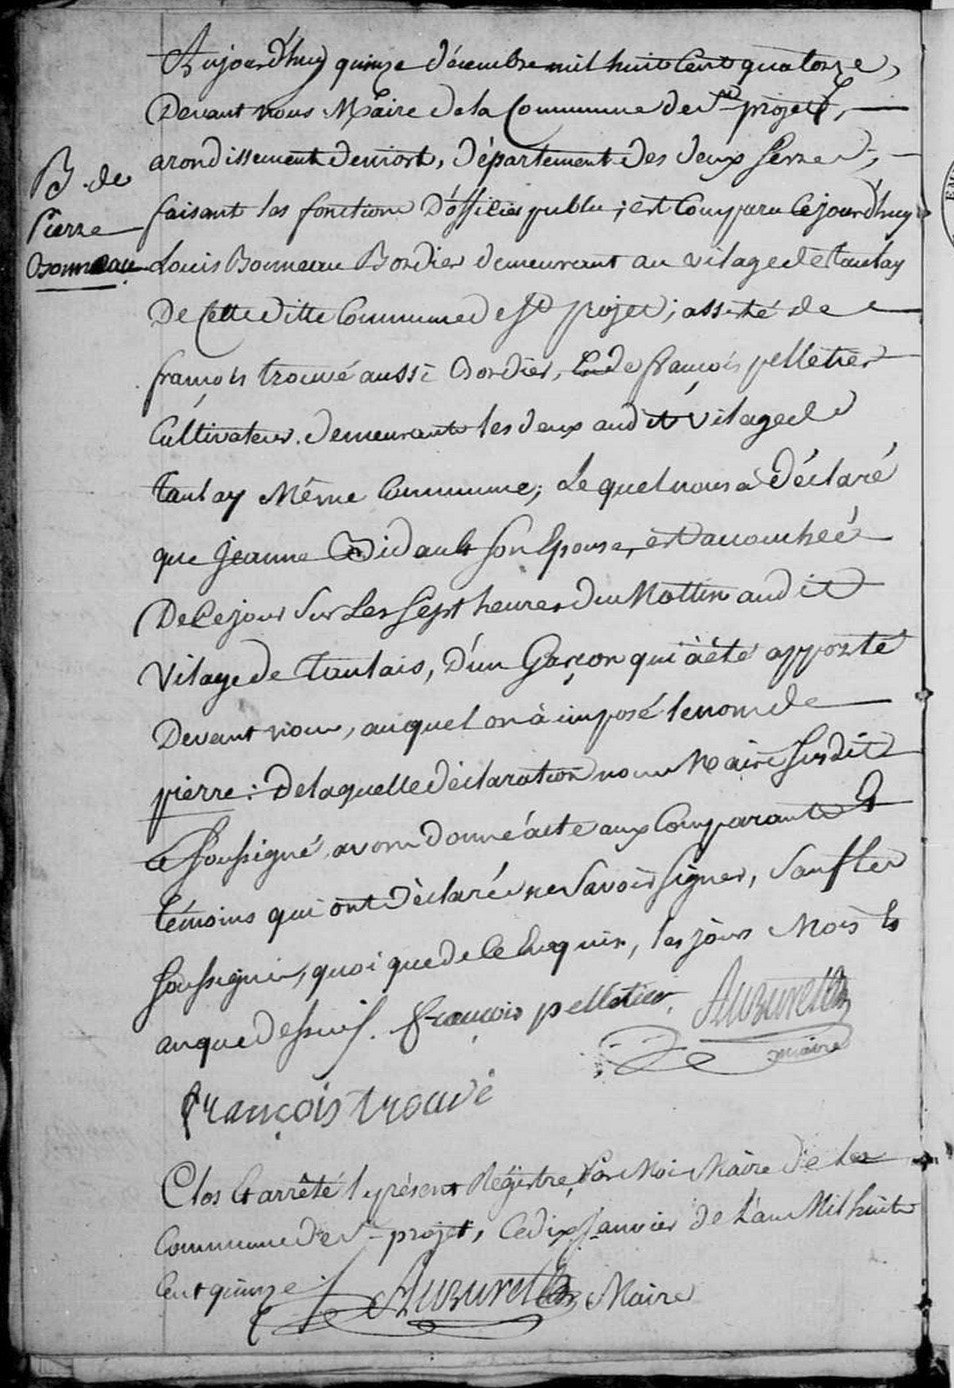 Aujourd'huy quinze décembre mil huit Cent quatorze,
Devant nous Maire de la Commune de St projet,
arondissement de niort, département des deux Sevres,
B. de
Pierre
Bonneau
faisant les fonctions D'officier public; est Comparu Cejourd'huy
Louis Bonneau Bordier demeurant au vilage de taulay
De Cette ditte Commune de St projet; assisté de
françois trouvé aussi Bordier, Et de françois pelletier
Cultivateur. demeurants les deux audit vilage de
taulay Même Commune; Le quel nous à Déclaré
que Jeanne Bidault son Epouse, est accouchée
De Cejour sur Les Sept heures du Mattin audit
vilage de taulais, D'un Garçon qui à été apporté
Devant nous, auquel on à imposé le nom de
pierre: De laquelle déclaration nous Maire susdit
Soussigné avons donné acte aux Comparants Et
témoins qui ont Déclarés ne savoir signer, sauf les
soussignés, quoi que de ce Enquis, les jour Mois Et
an que dessus. françois pelletier. Auzuret
maire
françois trouvé
Clos Et arrêté le présent Régistre, Par Moi Maire de la
Commune de St projet, Ce dix Janvier de L'an Mil huit
Cent quinze Auzuret Maire